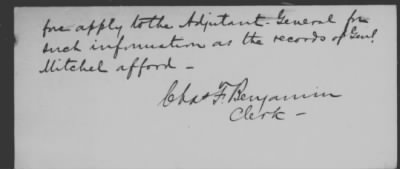 fore apply to the Adjutant-General for
such information as the records of Genl.
Mitchel afford -
Chas F. Benjamin
Clerk -